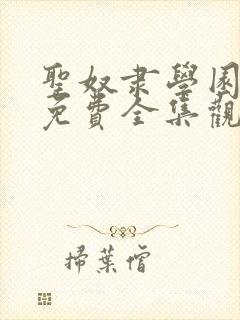 聖奴隶學園
免費全集觀
掃葉僧